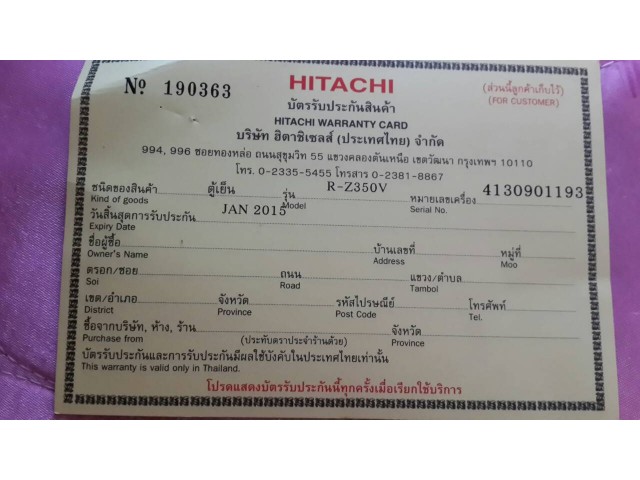 Nº 190363
HITACHI
(ส่วนนี้ลูกค้าเก็บไว้)
(FOR CUSTOMER)
บัตรรับประกันสินค้า
HITACHI WARRANTY CARD
บริษัท ฮิตาชิเซลส์ (ประเทศไทย) จำกัด
994, 996 ซอยทองหล่อ ถนนสุขุมวิท 55 แขวงคลองตันเหนือ เขตวัฒนา กรุงเทพฯ 10110
โทร. 0-2335-5455 โทรสาร 0-2381-8867
ชนิดของสินค้า ตู้เย็น รุ่น R-Z350V หมายเลขเครื่อง 4130901193
Kind of goods Model Serial No.
วันสิ้นสุดการรับประกัน JAN 2015
Expiry Date
ชื่อผู้ซื้อ บ้านเลขที่ หมู่ที่
Owner's Name Address Moo
ตรอก/ซอย ถนน แขวง/ตำบล
Soi Road Tambol
เขต/อำเภอ จังหวัด รหัสไปรษณีย์ โทรศัพท์
District Province Post Code Tel.
ซื้อจากบริษัท, ห้าง, ร้าน (ประทับตราประจำร้านด้วย) จังหวัด
Purchase from Province
บัตรรับประกันและการรับประกันมีผลใช้บังคับในประเทศไทยเท่านั้น
This warranty is valid only in Thailand.
โปรดแสดงบัตรรับประกันนี้ทุกครั้งเมื่อเรียกใช้บริการ